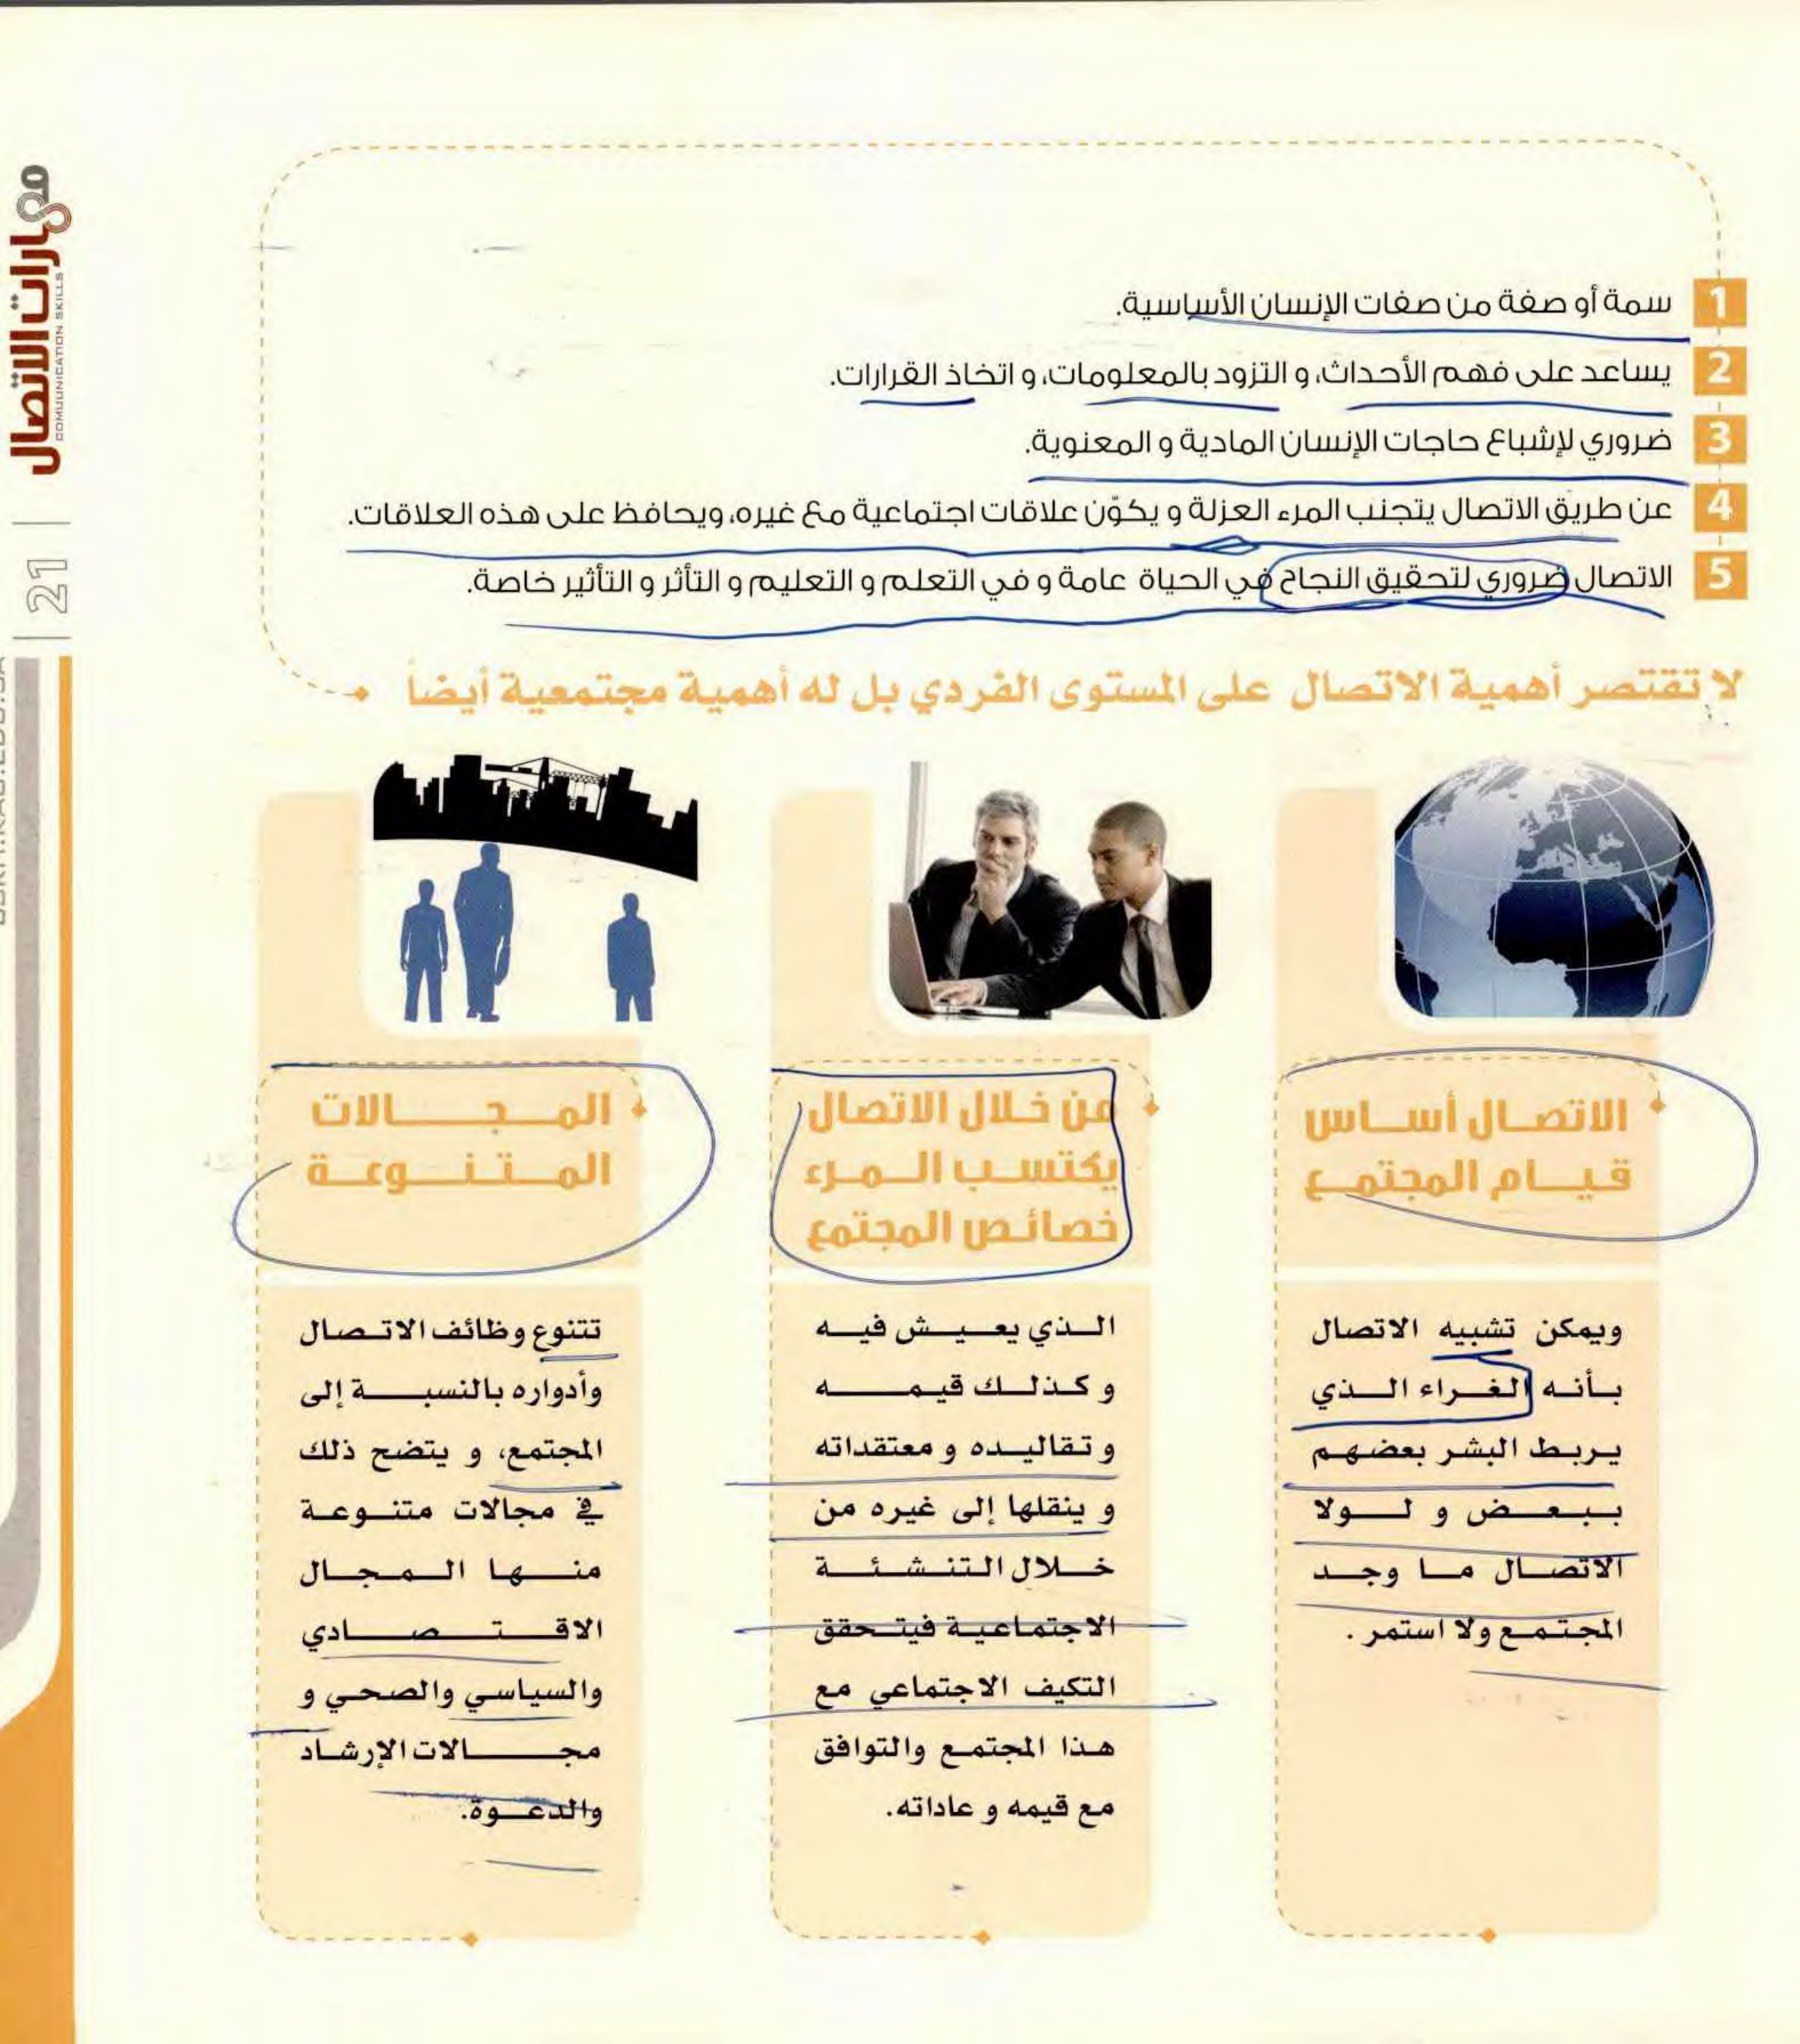 مهارات الاتصال
COMMUNICATION SKILLS
21
1 سمة أو صفة من صفات الإنسان الأساسية.
2 يساعد على فهم الأحداث، و التزود بالمعلومات، و اتخاذ القرارات.
3 ضروري لإشباع حاجات الإنسان المادية و المعنوية.
4 عن طريق الاتصال يتجنب المرء العزلة و يكوّن علاقات اجتماعية مع غيره، ويحافظ على هذه العلاقات.
5 الاتصال ضروري لتحقيق النجاح في الحياة عامة و في التعلم و التعليم و التأثر و التأثير خاصة.
لا تقتصر أهمية الاتصال على المستوى الفردي بل له أهمية مجتمعية أيضاً
الاتصال أساس
قيام المجتمع
ويمكن تشبيه الاتصال
بأنه الغراء الذي
يربط البشر بعضهم
ببعض و لولا
الاتصال ما وجد
المجتمع ولا استمر .
من خلال الاتصال
يكتسب المرء
خصائص المجتمع
الذي يعيش فيه
و كذلك قيمه
و تقاليده و معتقداته
و ينقلها إلى غيره من
خلال التنشئة
الاجتماعية فيتحقق
التكيف الاجتماعي مع
هذا المجتمع والتوافق
مع قيمه و عاداته.
المجالات
المتنوعة
تتنوع وظائف الاتصال
وأدواره بالنسبة إلى
المجتمع، و يتضح ذلك
في مجالات متنوعة
منها المجال
الاقتصادي
والسياسي والصحي و
مجالات الإرشاد
والدعوة.